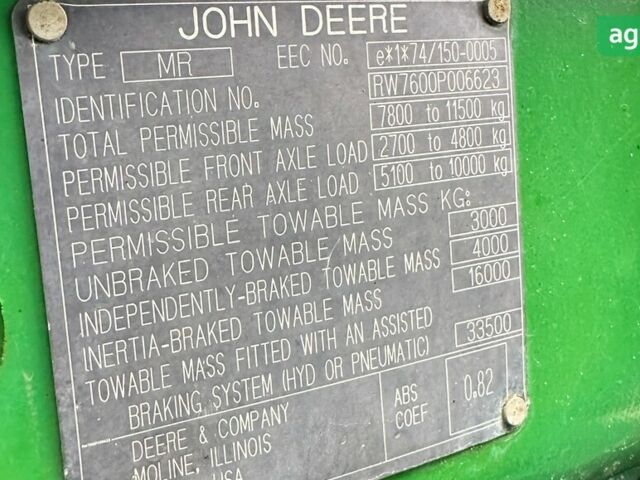 JOHN DEERE
TYPE MR EEC NO. e*1*74/150-0005
IDENTIFICATION NO. RW7600P006623
TOTAL PERMISSIBLE MASS 7800 to 11500 kg
PERMISSIBLE FRONT AXLE LOAD 2700 to 4800 kg
PERMISSIBLE REAR AXLE LOAD 5100 to 10000 kg
PERMISSIBLE TOWABLE MASS KG:
UNBRAKED TOWABLE MASS 3000
INDEPENDENTLY-BRAKED TOWABLE MASS 4000
INERTIA-BRAKED TOWABLE MASS 16000
TOWABLE MASS FITTED WITH AN ASSISTED
BRAKING SYSTEM (HYD OR PNEUMATIC) 33500
DEERE & COMPANY
MOLINE, ILLINOIS
USA
ABS
COEF
0.82
ag